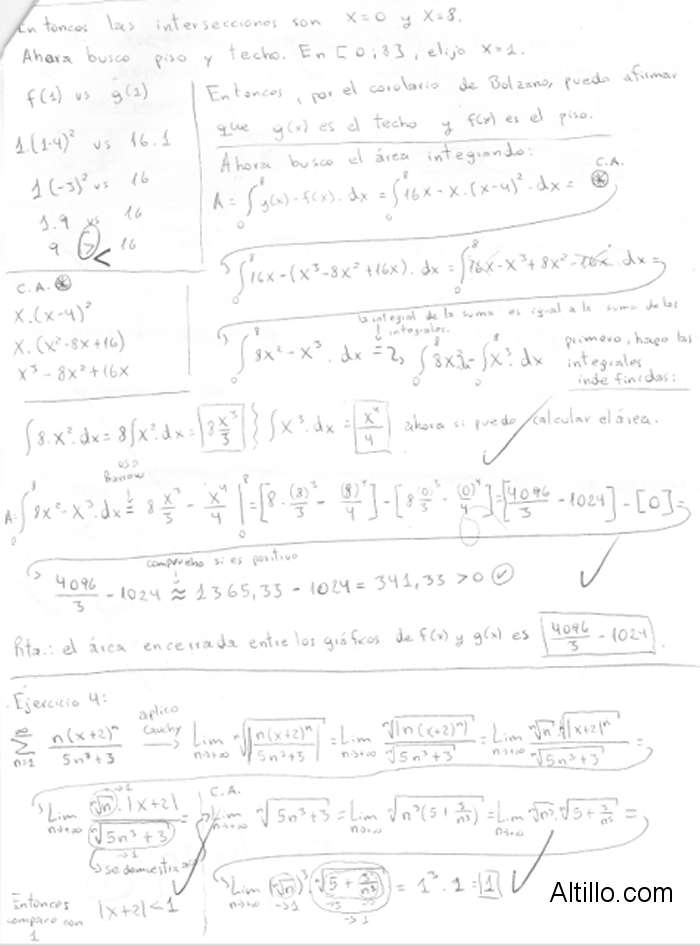 Entonces las intersecciones son x=0 y x=8.
Ahora busco piso y techo. En [0;8], elijo x=1.
f(1) vs g(1)
1.(1-4)² vs 16.1
1(-3)² vs 16
1.9 vs 16
9 < 16
Entonces, por el corolario de Bolzano, puedo afirmar
que g(x) es el techo y f(x) es el piso.
Ahora busco el área integrando:
A = ∫₀⁸ g(x) - f(x).dx = ∫₀⁸ 16x - x.(x-4)².dx = C.A. ⊛
∫₀⁸ 16x - (x³ - 8x² + 16x).dx = ∫₀⁸ 16x - x³ + 8x² - 16x.dx =
C.A. ⊛
x.(x-4)²
x.(x²-8x+16)
x³ - 8x² + 16x
la integral de la suma es igual a la suma de las
integrales.
∫₀⁸ 8x² - x³.dx = ∫₀⁸ 8x² - ∫₀⁸ x³.dx
primero, hago las
integrales
indefinidas:
∫8.x².dx = 8∫x².dx = 8 x³/3 } ∫x³.dx = x⁴/4 ahora si puedo calcular el área.
uso
Barrow
A: ∫₀⁸ 8x² - x³.dx = 8 x³/3 - x⁴/4 |₀⁸ = [8.(8)³/3 - (8)⁴/4] - [8 (0)³/3 - (0)⁴/4] = [4096/3 - 1024] - [0] =
compruebo si es positivo
4096/3 - 1024 ≈ 1365,33 - 1024 = 341,33 > 0 ✓
Rta.: el área encerrada entre los gráficos de f(x) y g(x) es 4096/3 - 1024.
Ejercicio 4:
∞∑n=1 n(x+2)ⁿ/5n³+3 aplico Cauchy → Lim n→+∞ ⁿ√|n(x+2)ⁿ/5n³+3| = Lim n→+∞ ⁿ√|n(x+2)ⁿ|/ⁿ√5n³+3 = Lim n→+∞ ⁿ√n.ⁿ√|x+2|ⁿ/ⁿ√5n³+3 =
Lim n→+∞ ⁿ√n.|x+2|/ⁿ√5n³+3 =
→1
→1
se demuestra
C.A.
Lim n→+∞ ⁿ√5n³+3 = Lim n→+∞ ⁿ√n³(5+3/n³) = Lim n→+∞ ⁿ√n³.ⁿ√5+3/n³ =
Lim n→+∞ (ⁿ√n)³.ⁿ√5+3/n³ = 1³.1 = 1
→1 →1
Entonces
comparo con
1
|x+2|<1
Altillo.com